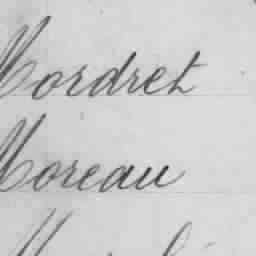 Mordret
Moreau